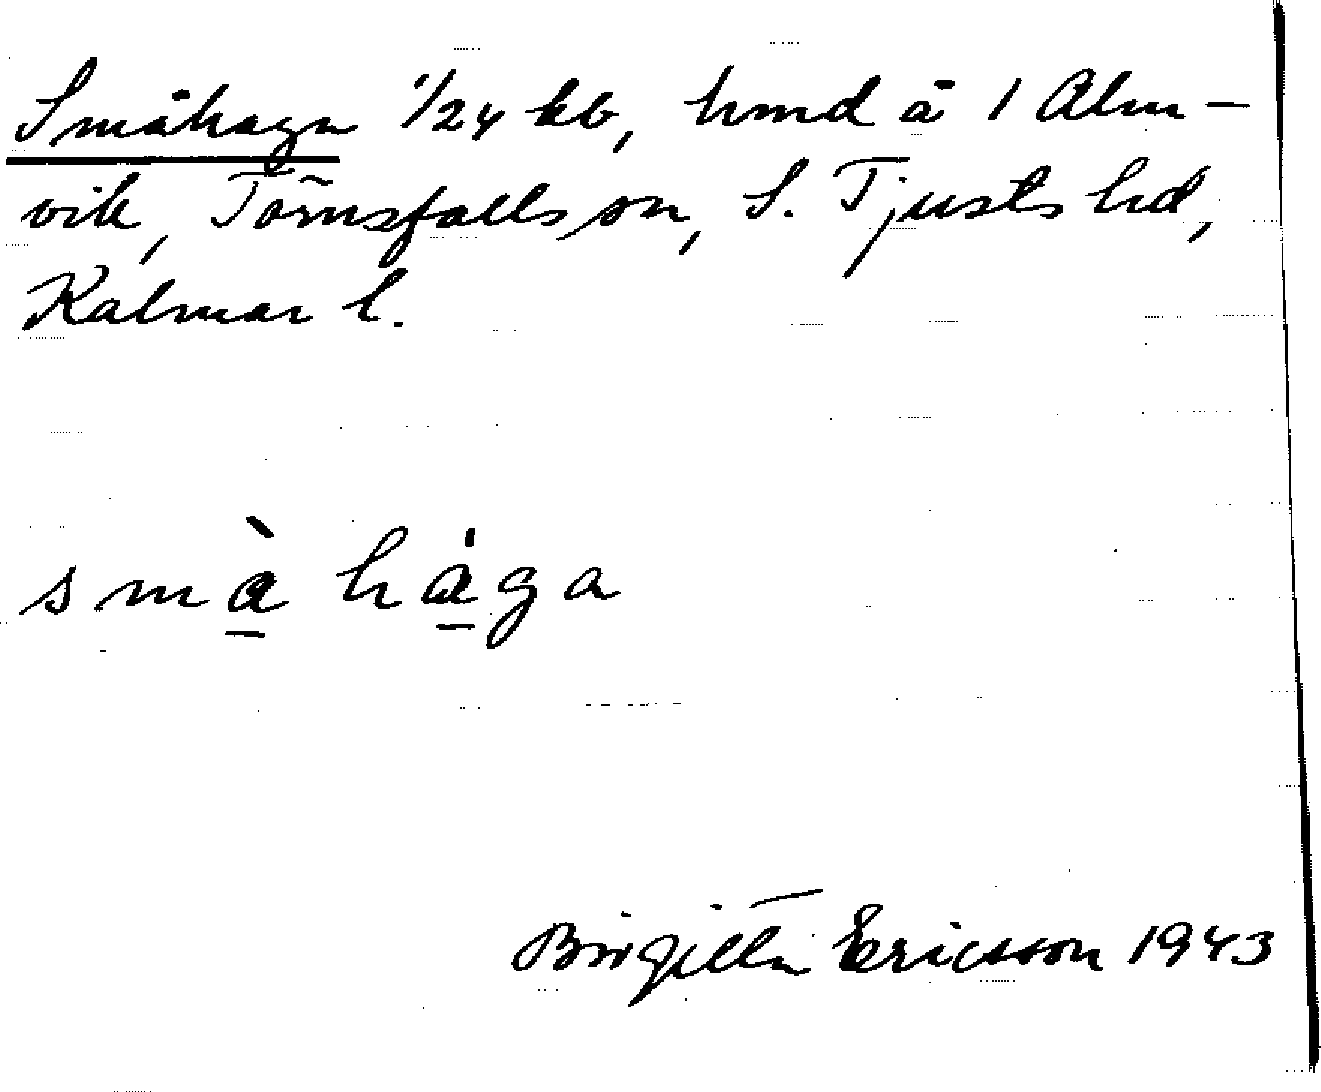 Småhagn 1/24 kb, hmd å 1 Alm-
vik, Törnsfalls sn, S. Tjusts hd,
Kalmar l.
smà hàga
Birgitta Ericsson 1943